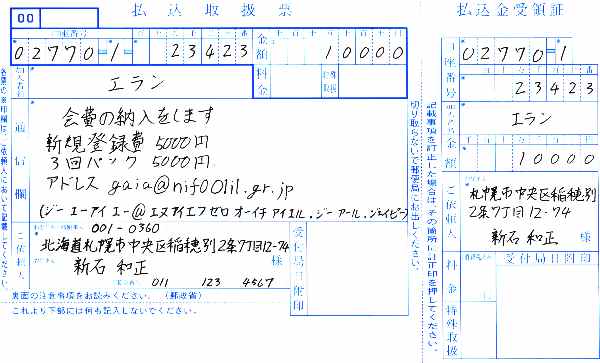 払込取扱票
00
口座番号
02770=1= 23423
金額
10000
加入者名
エラン
料金
特殊取扱
通信欄
会費の納入をします
新規登録費 5000円
3回パック 5000円
アドレス gaia@nif001il.gr.jp
(ジーエーアイエー@エヌアイエフゼロオーイチアイエル.ジーアール.ジェイピー)
ご依頼人
001-0360
北海道札幌市中央区稲穂別2条7丁目12-74
新石 和正
様
011 123 4567
受付局日附印
裏面の注意事項をお読みください。(郵政省)
これより下部には何も記入しないでください。
各票の※印欄は、ご依頼人において記載してください。
切り取らないで郵便局にお出しください。
記載事項を訂正した場合は、その箇所に訂正印を押してください。
払込金受領証
口座番号
02770=1
23423
エラン
金額
10000
ご依頼人
札幌市中央区稲穂別
2条7丁目12-74
新石 和正
様
料金
受付局日附印
特殊取扱